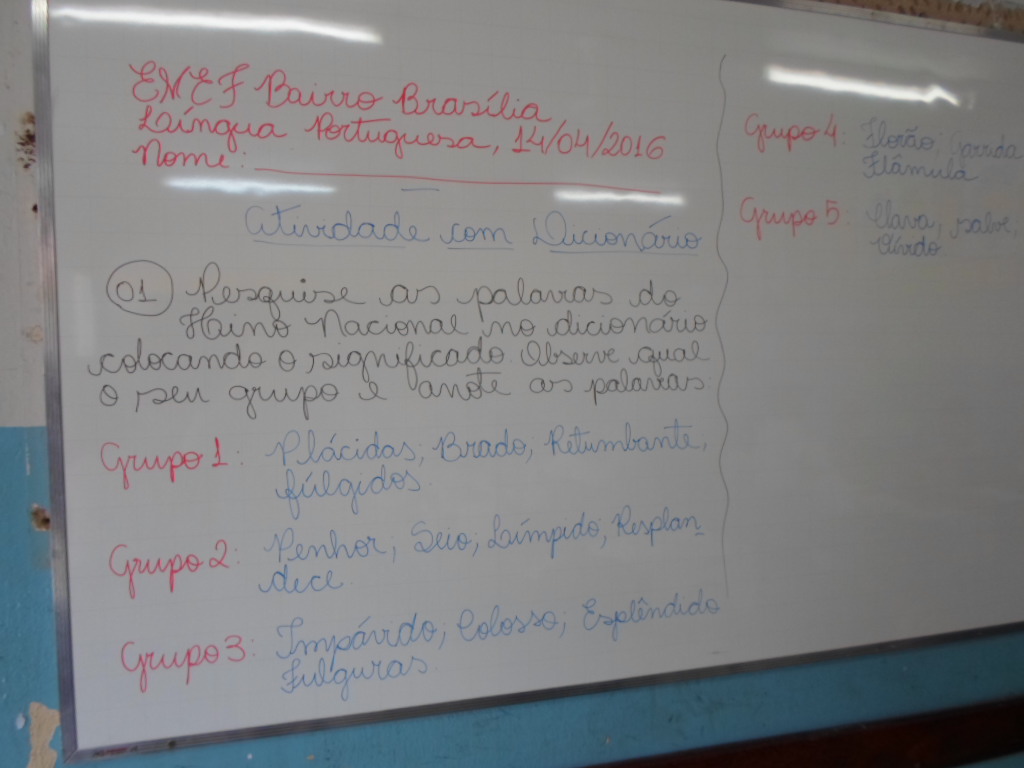 EMEF Bairro Brasília
Língua Portuguesa, 14/04/2016
Nome:
Atividade com Dicionário
01 Pesquise as palavras do
Haino Nacional no dicionário
colocando o significado. Observe qual
o seu grupo e anote as palavras:
Grupo 1: Plácidas; Brado; Retumbante,
fúlgidos.
Grupo 2: Penhor; Seio; Límpido; Resplan-
dece.
Grupo 3: Impávido; Colosso; Esplêndido
Fulguras.
Grupo 4: Florão; Garrida
Flâmula
Grupo 5: Clava; salve;